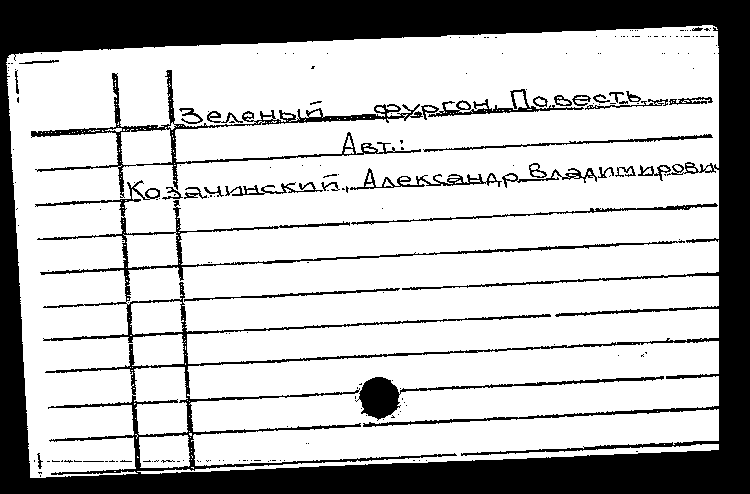 Зеленый фургон. Повесть.
Авт.:
Козачинский, Александр Владимирович